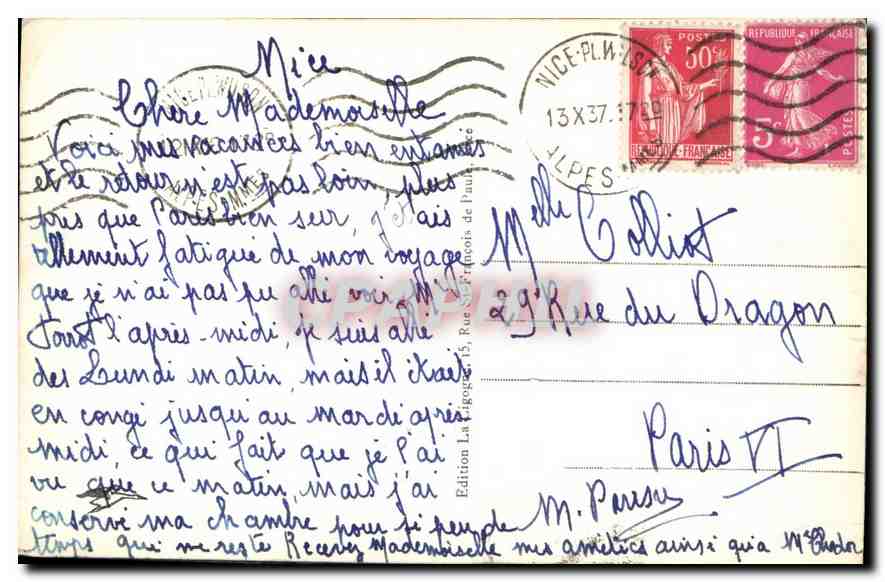 Nice
Chère Mademoiselle
Voici mes vacances bien entamés
et le retour n'est pas loin, plus
près que Paris bien seur, j'étais
tellement fatigué de mon voyage
que je n'ai pas pu allé voir Mr
l'après-midi, je suis allé
des Lundi matin, mais il était
en congé jusqu'au mardi après
midi, ce qui fait que je l'ai
vu que ce matin, mais j'ai
conservé ma chambre pour si peu de
temps qui me reste Recevez Mademoiselle mes amitiés ainsi qu'a Mr
M.
Melle Colliot
29 Rue du Dragon
Paris VI
Edition La Cigogne, 15, Rue St-François de Paule, Nice
NICE-PL.WILSON
13 X 37. 17
ALPES-MMES
NICE-PL.WILSON
ALPES-MMES
POSTES
50c
REPUBLIQUE-FRANÇAISE
REPUBLIQUE FRANÇAISE
5c
POSTES
CPAPHIL